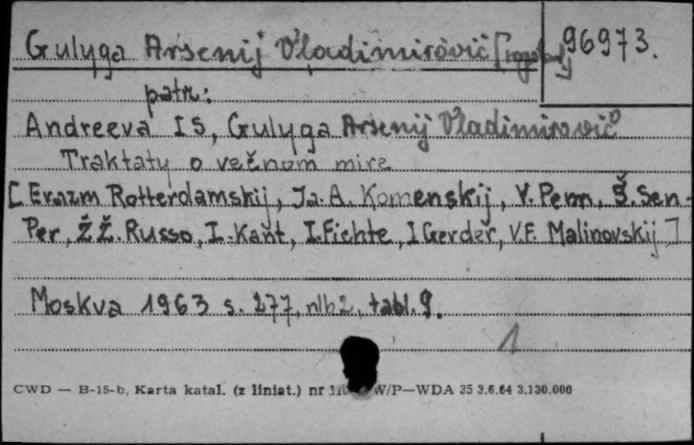 Gulyga Arsenij Vladimirovič 96973.
patrz:
Andreeva I S, Gulyga Arsenij Vladimirovič
Traktaty o večnom mire
[Erazm Rotterdamskij, Ja. A. Komenskij, V. Penn, Š. Sen-
Per, Ž Ž. Russo, I. Kant, I. Fichte, I Gerder, V. F. Malinovskij]
Moskva 1963 s. 277, nlb 2, tabl. 9.
1
CWD — B-15-b, Karta katal. (z liniat.) nr W/P—WDA 35 3.6.64 3.130.000